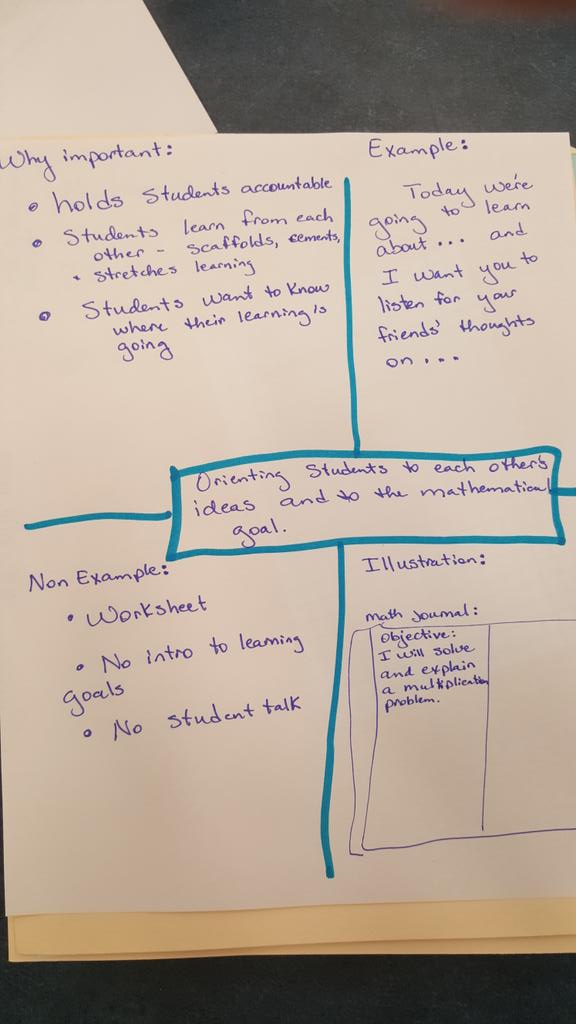 Why important:
• holds students accountable
• Students learn from each
other - scaffolds, cements,
+ stretches learning
• Students want to know
where their learning's
going
Example:
Today we're
going to learn
about... and
I want you to
listen for your
friends' thoughts
on...
Orienting Students to each other's
ideas and to the mathematical
goal.
Non Example:
• Worksheet
• No intro to learning
goals
• No student talk
Illustration:
math journal:
Objective:
I will solve
and explain
a multiplication
problem.